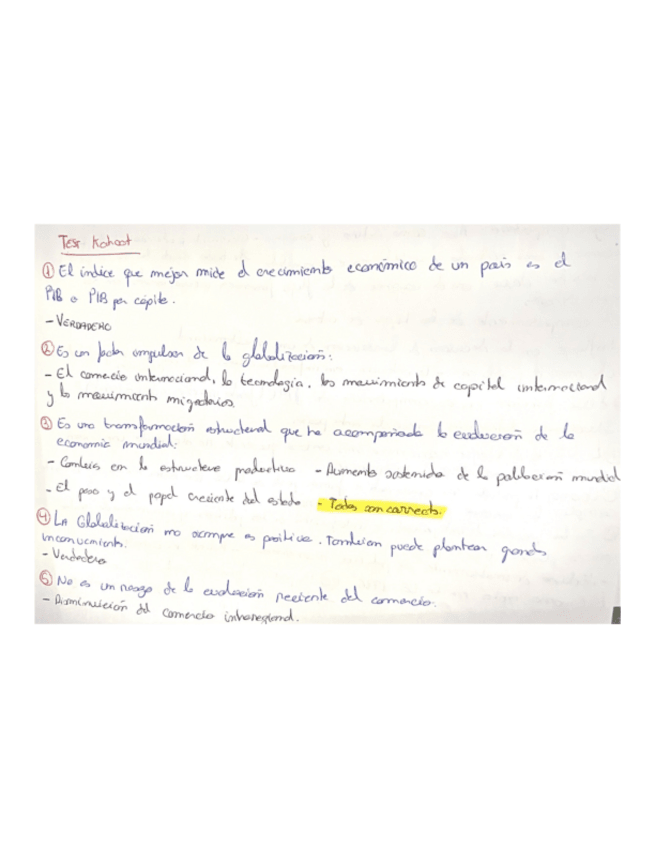 Test Kahoot
① El índice que mejor mide el crecimiento económico de un país es el
PIB o PIB per cápita.
- VERDADERO
② Es un factor impulsor de la globalización:
- El comercio internacional, la tecnología, los movimientos de capital internacional
y los movimientos migratorios
③ Es una transformación estructural que ha acompañado la evolución de la
economía mundial:
- Cambios en la estructura productiva - Aumento sostenido de la población mundial
- El peso y el papel creciente del estado - Todas son correctas.
④ La Globalización no siempre es positiva. También puede plantear grandes
inconvenientes.
- Verdadero
⑤ No es un rasgo de la evolución reciente del comercio.
- Disminución del comercio intrarregional.